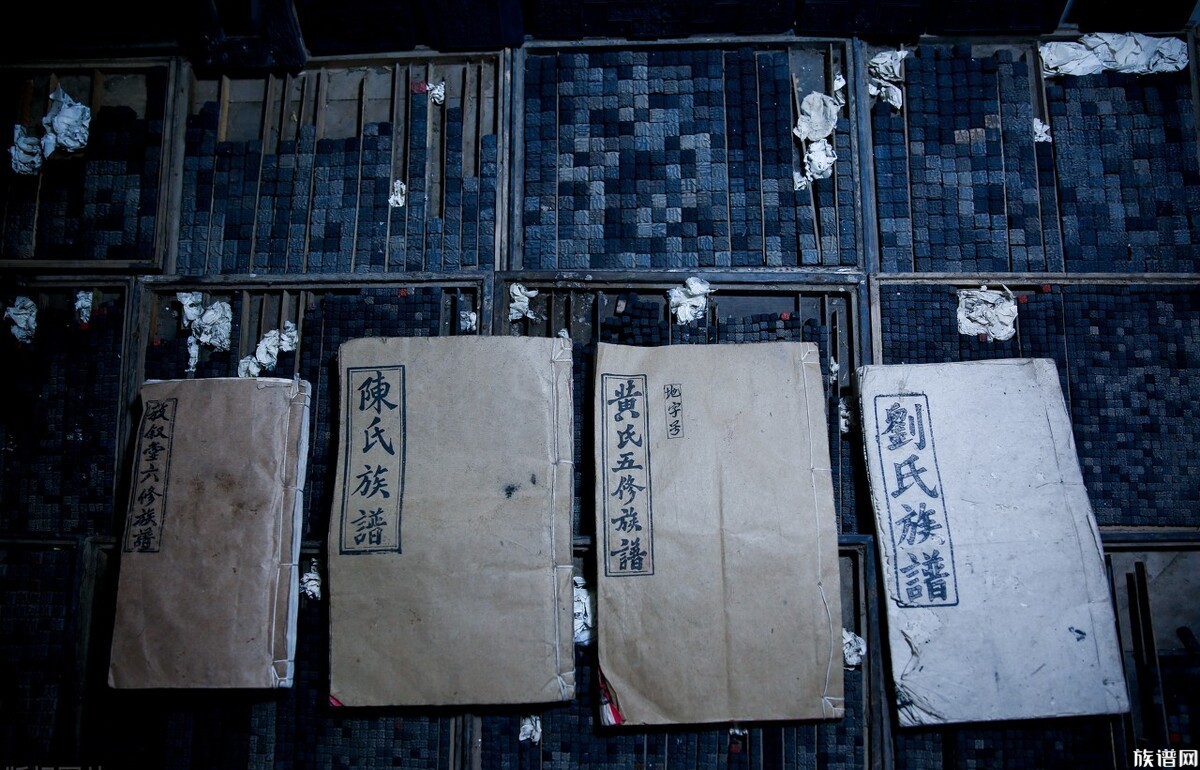 敦叙堂六修族譜
陳氏族譜
黄氏五修族譜
地字号
劉氏族譜
族谱网